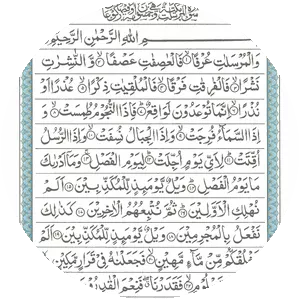 بسم الله الرحمن الرحيم
وَالْمُرْسَلٰتِ عُرْفًا ۝ فَالْعٰصِفٰتِ عَصْفًا ۝ وَّالنّٰشِرٰتِ
نَشْرًا ۝ فَالْفٰرِقٰتِ فَرْقًا ۝ فَالْمُلْقِيٰتِ ذِكْرًا ۝ عُذْرًا اَوْ
نُذْرًا ۝ اِنَّمَا تُوْعَدُوْنَ لَوَاقِعٌ ۝ فَاِذَا النُّجُوْمُ طُمِسَتْ ۝ وَ
اِذَا السَّمَآءُ فُرِجَتْ ۝ وَاِذَا الْجِبَالُ نُسِفَتْ ۝ وَاِذَا الرُّسُلُ
اُقِّتَتْ ۝ لِاَيِّ يَوْمٍ اُجِّلَتْ ۝ لِيَوْمِ الْفَصْلِ ۝ وَمَآ اَدْرٰىكَ
مَا يَوْمُ الْفَصْلِ ۝ وَيْلٌ يَّوْمَئِذٍ لِّلْمُكَذِّبِيْنَ ۝ اَلَمْ
نُهْلِكِ الْاَوَّلِيْنَ ۝ ثُمَّ نُتْبِعُهُمُ الْاٰخِرِيْنَ ۝ كَذٰلِكَ
نَفْعَلُ بِالْمُجْرِمِيْنَ ۝ وَيْلٌ يَّوْمَئِذٍ لِّلْمُكَذِّبِيْنَ ۝ اَلَمْ
نَخْلُقْكُّمْ مِّنْ مَّآءٍ مَّهِيْنٍ ۝ فَجَعَلْنٰهُ فِيْ قَرَارٍ مَّكِيْنٍ ۝
مَّعْلُوْمٍ ۝ فَقَدَرْنَا ۖ فَنِعْمَ الْقٰدِرُوْنَ